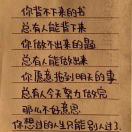 你背不下来的书
总有人能背下来
你做不出来的题
总有人能做出来
你愿意拖到明天的事
总有人今天努力做完
那么不好意思
你想过的人生只能别人过了